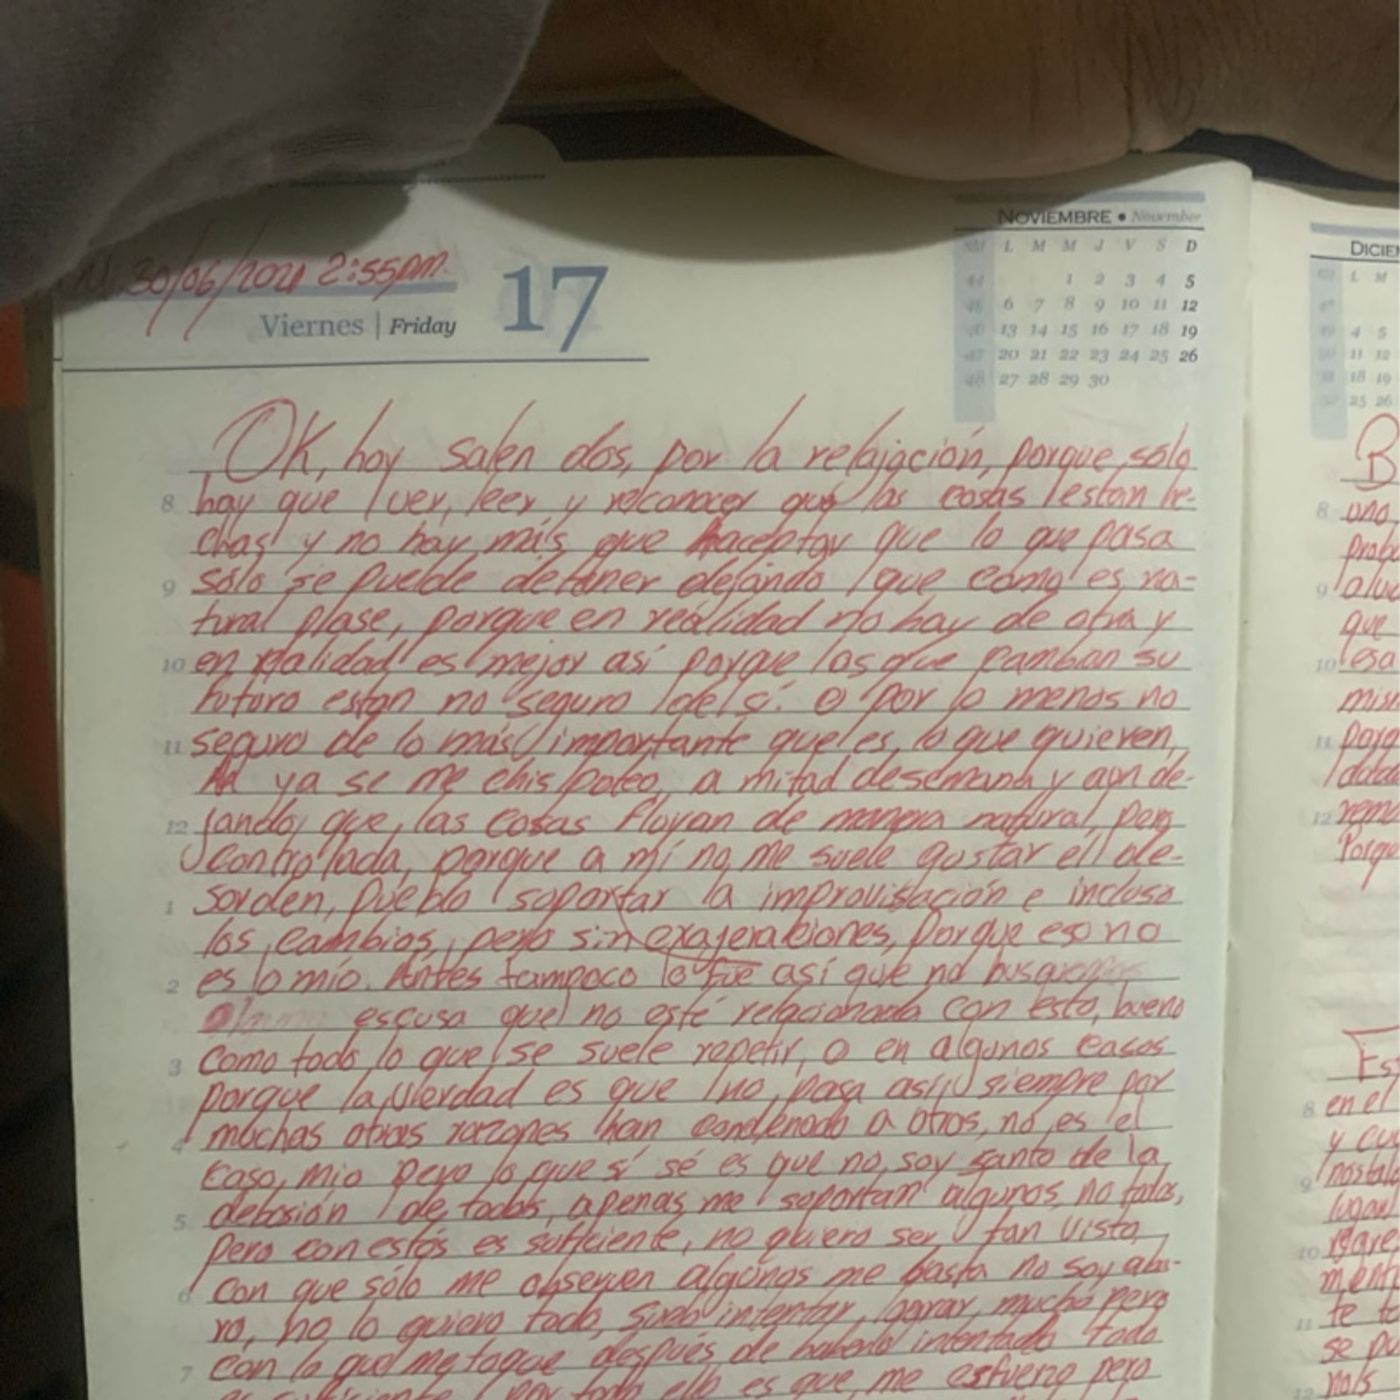 30/06/2021 2:55pm.
Viernes | Friday 17
NOVIEMBRE • November
L M M J V S D
44 1 2 3 4 5
45 6 7 8 9 10 11 12
46 13 14 15 16 17 18 19
47 20 21 22 23 24 25 26
48 27 28 29 30
OK, hoy salen dos, por la relajación, porque sólo
8 hay que ver, leer y reconocer que las cosas estan he-
chas y no hay más que haceptar que lo que pasa
9 sólo se puede detener dejando que como es na-
tural plase, porque en realidad no hay de otra y
10 en realidad es mejor así porque los que camban su
futuro estan no seguro de sí. O por lo menos no
11 seguro de lo más importante que es, lo que quieren,
ya se me chispoteo, a mitad de semana y aun de-
12 jando que las cosas fluyan de manera natural, pero
controlada, porque a mí no me suele gustar el de-
1 sorden, puebdo soportar la improvisación e incluso
los cambios, pero sin exajeraciones, porque eso no
2 es lo mío. Antes tampoco lo fue así que no busquemos
escusa que no esté relacionada con esto, bueno
3 como todo lo que se suele repetir, o en algunos casos
porque la verdad es que no pasa así, siempre por
4 muchas otras razones han condenado a otros, no es el
caso mio pero lo que sí sé es que no soy santo de la
5 debosión de todos, apenas me soportan algunos, no todos,
pero con estos es suficiente, no quiero ser tan visto,
6 con que sólo me observen algunos me basta no soy aba-
ro, no lo quiero todo, suelo intentar, lograr mucho pero
7 con lo que me toque después de haberlo intentado todo
es suficiente, por todo ello es que me esfuerzo pero
DICIEM
L M
4 5
11 12
18 19
25 26
B
8 una
9
que
10 esa
11 porq
12
Porque
Es
8 en el
y cu
9
10
11 te
se pu
más